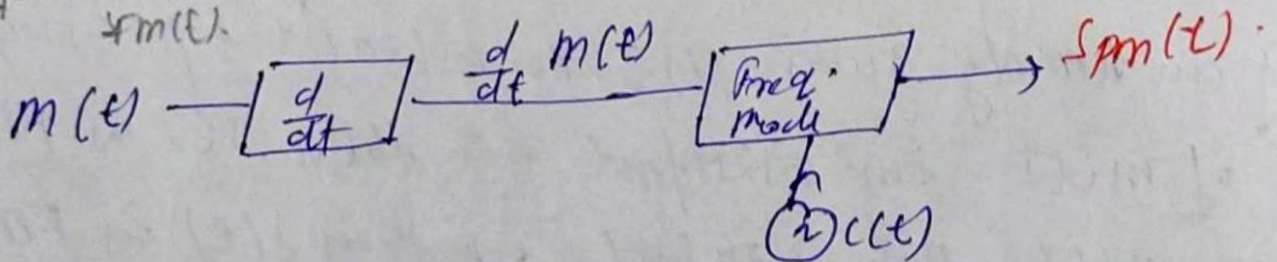 m(t).
m(t) d/dt d/dt m(t) Freq. Mod Spm(t).
c(t)